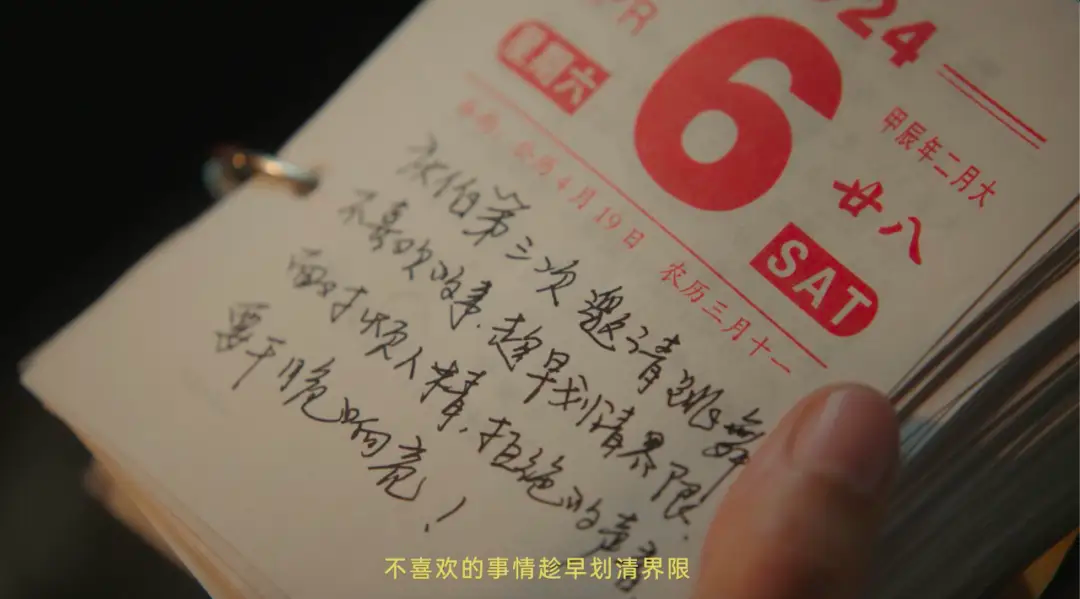 2024
星期六
6
甲辰年二月大
廿八
SAT
公历4月19日 农历三月十一
张伯第三次邀请跳舞
不喜欢的事.趁早划清界限.
面对烦人精,拒绝的声音
要干脆响亮!
不喜欢的事情趁早划清界限